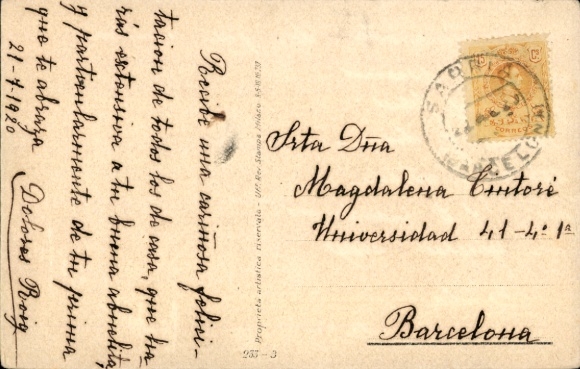 Recibe una cariñosa felici-
tacion de todos los de casa, que ha-
rás extensiva a tu buena abuelita,
y particularmente de tu prima
que te abraza
Dolores Roig
21-7-1920
Proprietà artistica riservata - Uff. Rev. Stampa Milano
233-3
SARRIÁ
BARCELONA
CORREOS
Srta Dña
Magdalena
Universidad 41-4º 1ª
Barcelona